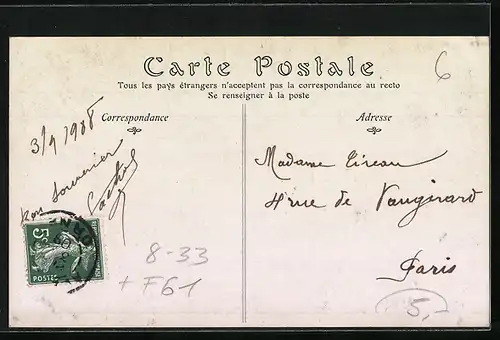 Carte Postale
Tous les pays étrangers n'acceptent pas la correspondance au recto
Se renseigner à la poste
Correspondance
Adresse
6
3/9 1908
Bon Souvenir
Madame
4 rue de Vaugirard
Paris
5c
POSTES
8-33
+F61
5,-